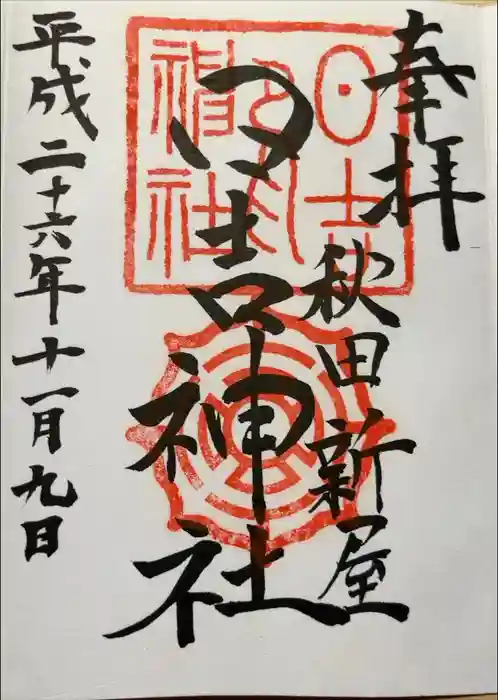 奉拝
秋田新屋
日吉神社
平成二十六年十一月九日